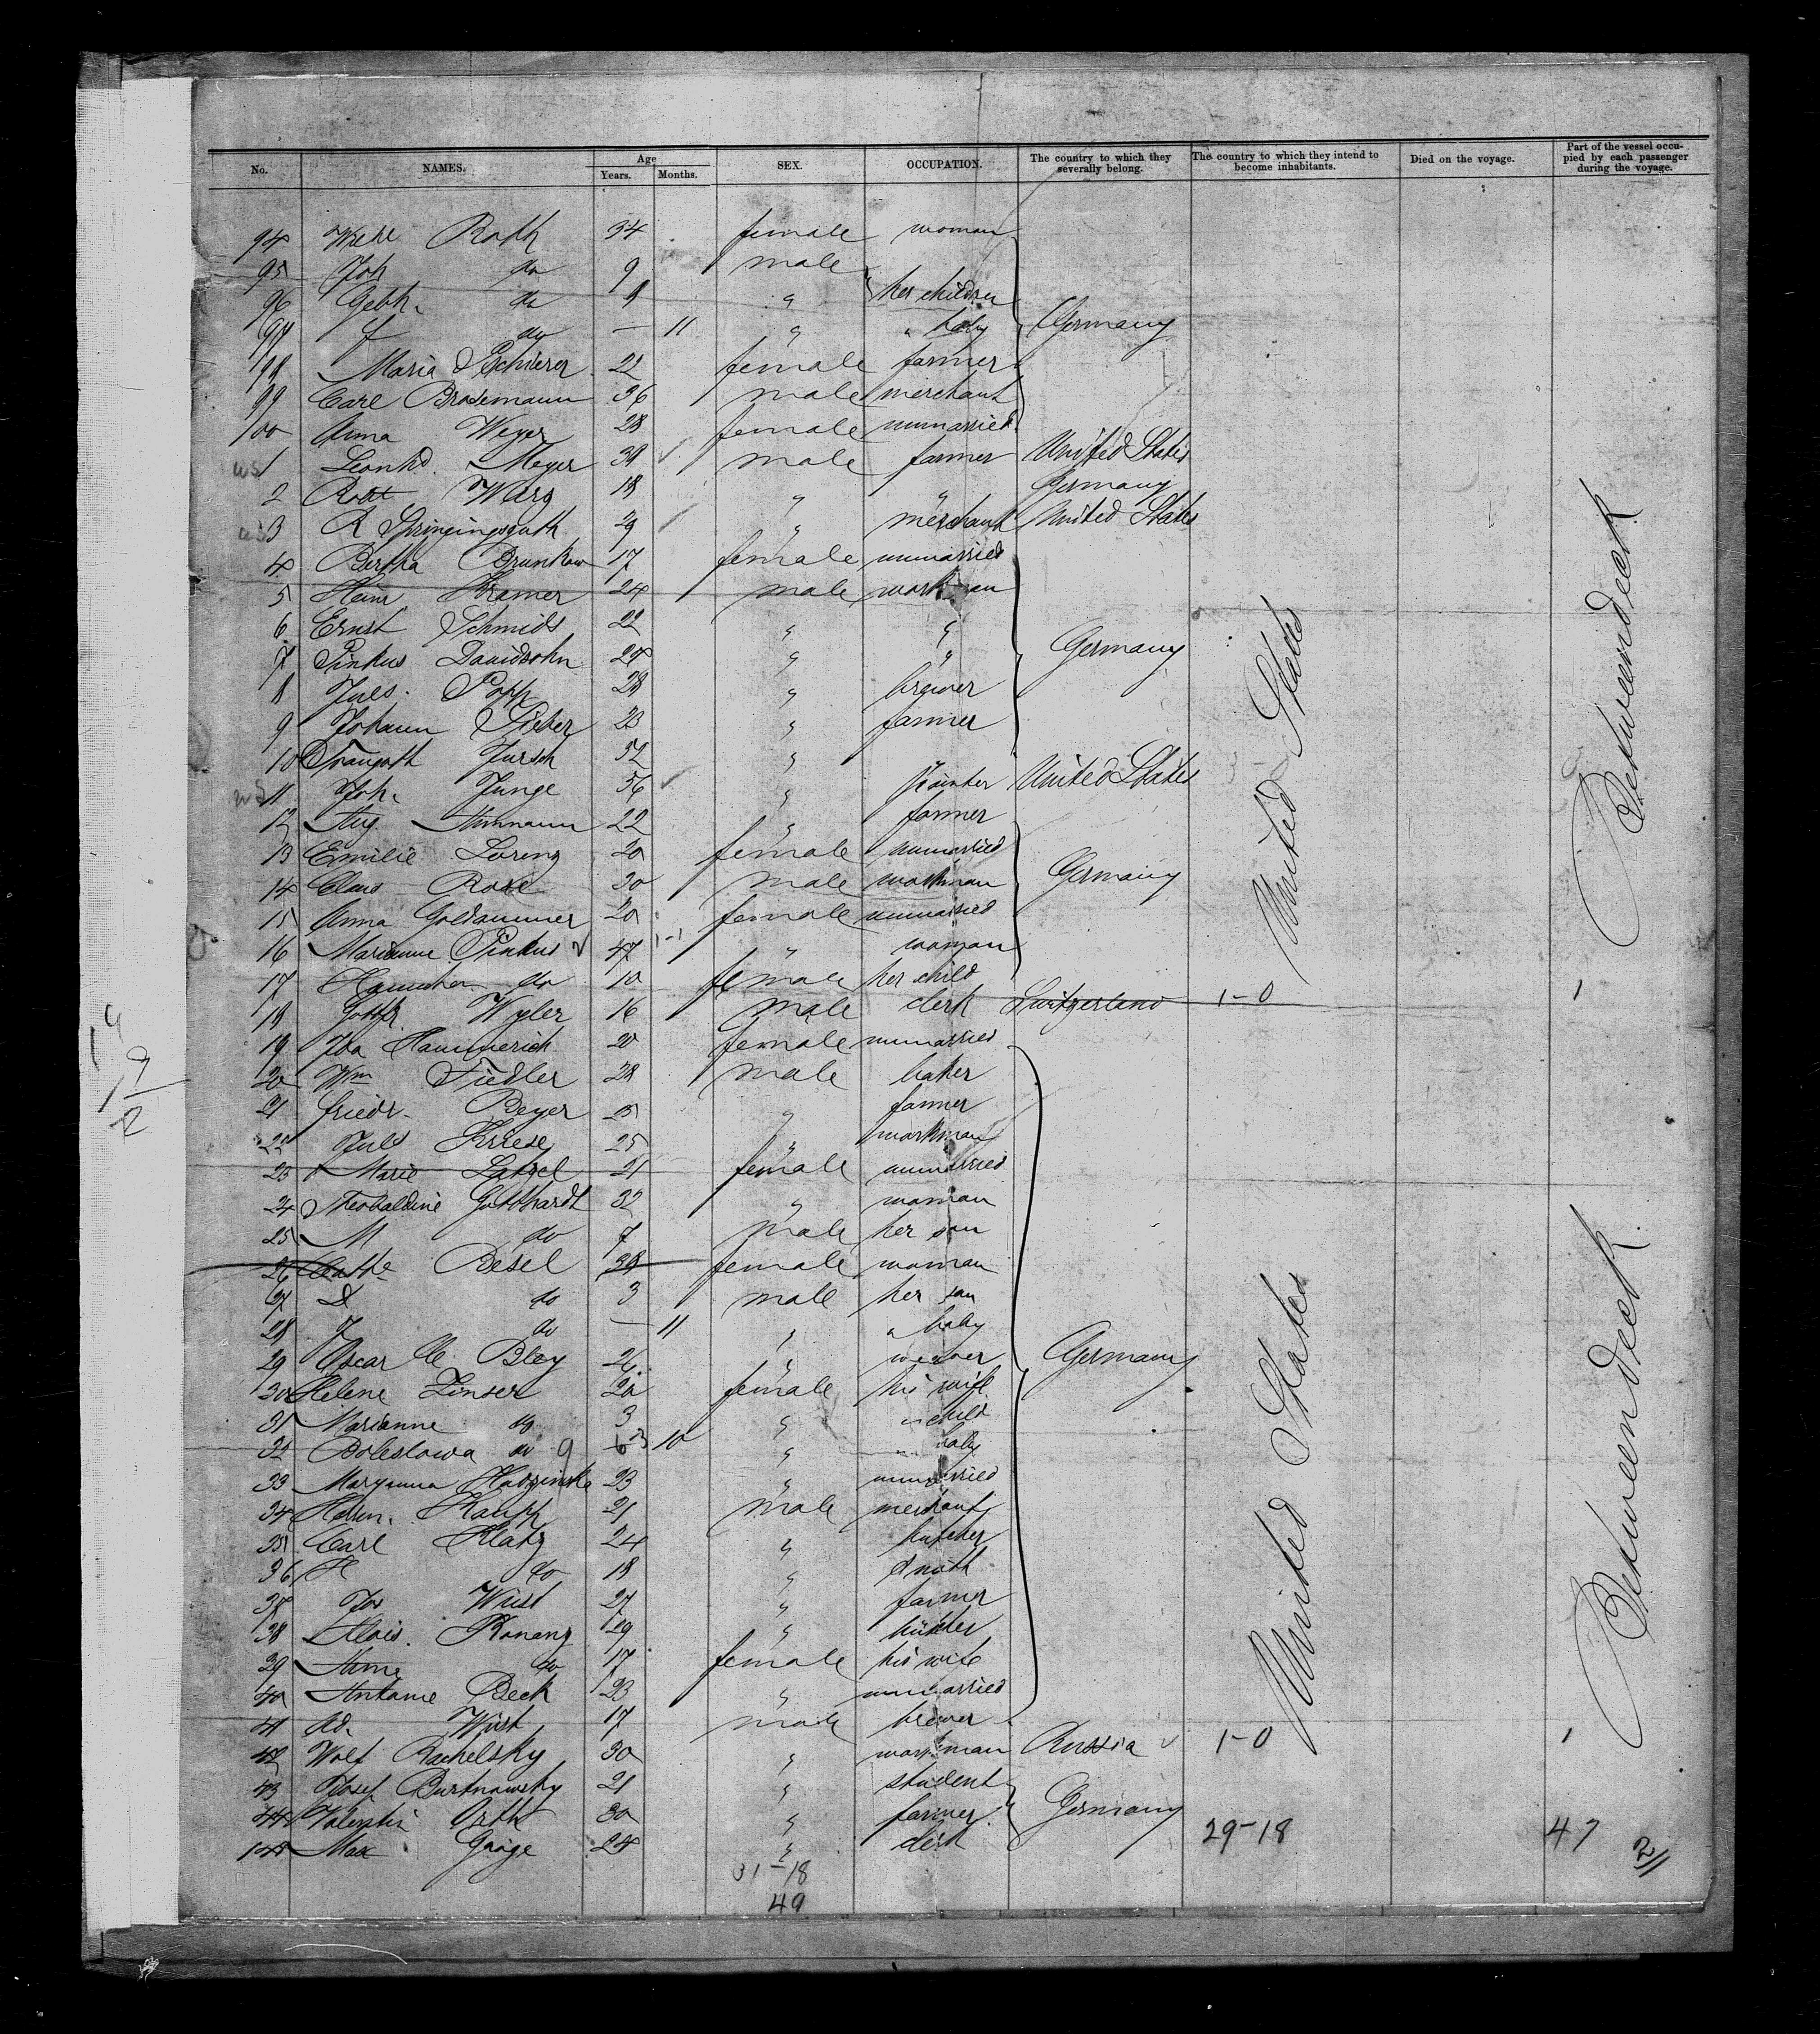 No. NAMES. Age Years. Months. SEX. OCCUPATION. The country to which they severally belong. The country to which they intend to become inhabitants. Died on the voyage. Part of the vessel occupied by each passenger during the voyage.
94 Roth 34 female woman
95 Joh do 9 male
96 Gebh. do 8 " her children
97 do — 11 " " baby Germany
98 Maria 22 female farmer
99 Carl Brosemann 36 male merchant
100 Anna Weyer 28 female unmarried
1 Leonhd. Meyer 38 male farmer United States
2 Robt Warg 18 " " Germany
3 R Springingsguth 29 " merchant United States
4 Bertha Brunkow 17 female unmarried
5 Heinr. Kramer 24 male workman
6 Ernst Schmidt 22 " "
7 Pinkus Davidsohn 24 " " Germany
8 Juls. Popp 28 " brewer
9 Johann Sieber 23 " farmer
10 Traugoth Jursch 52 "
11 Joh. Junge 56 " United States
12 Aug. Ammann 22 " farmer
13 Emilie Lorenz 20 female unmarried
14 Claus Rose 30 male workman Germany
15 Anna Goldammer 20 female unmarried
16 Marianne Pinkus 47 " woman
17 do 10 female her child
18 Gottfr. Wyler 16 male clerk Switzerland 1-0
19 Ida Hammerich 20 female unmarried
20 Wm Fiedler 28 male baker
21 Friedr. Beyer " farmer
22 Juls Kriese 25 " workman
23 Marie Latzel 21 female unmarried
24 Theobaldine Gotthardt 32 " woman
25 M do 7 male her son
26 Cathe Besel 38 female woman
27 do 3 male her son
28 J do — 11 " " baby
29 Oscar C. Bley 26 " weaver Germany
30 Helene Zinser 20 female his wife
31 Marianne do 3 " " child
32 Boleslawa do 10 " " baby
33 Maryanna 23 " unmarried
34 Herm. Kaupp 21 male merchant
35 Carl Klatz 24 " butcher
36 H do 18 " smith
37 Jos Wüst 27 " farmer
38 Alois. Konanz 29 "
39 Anna do 17 female his wife
40 Antonie Beck 23 " unmarried
41 Ad. Wüst 17 male brewer
42 Wolf Rachelsky 30 " workman Russia 1-0
43 Josef Burtnowsky 21 " student
44 Valentin Orth 30 " farmer Germany
145 Max Gange 24 " clerk
29-18 47
31-18
49
United States
Betweendeck
United States
Betweendeck